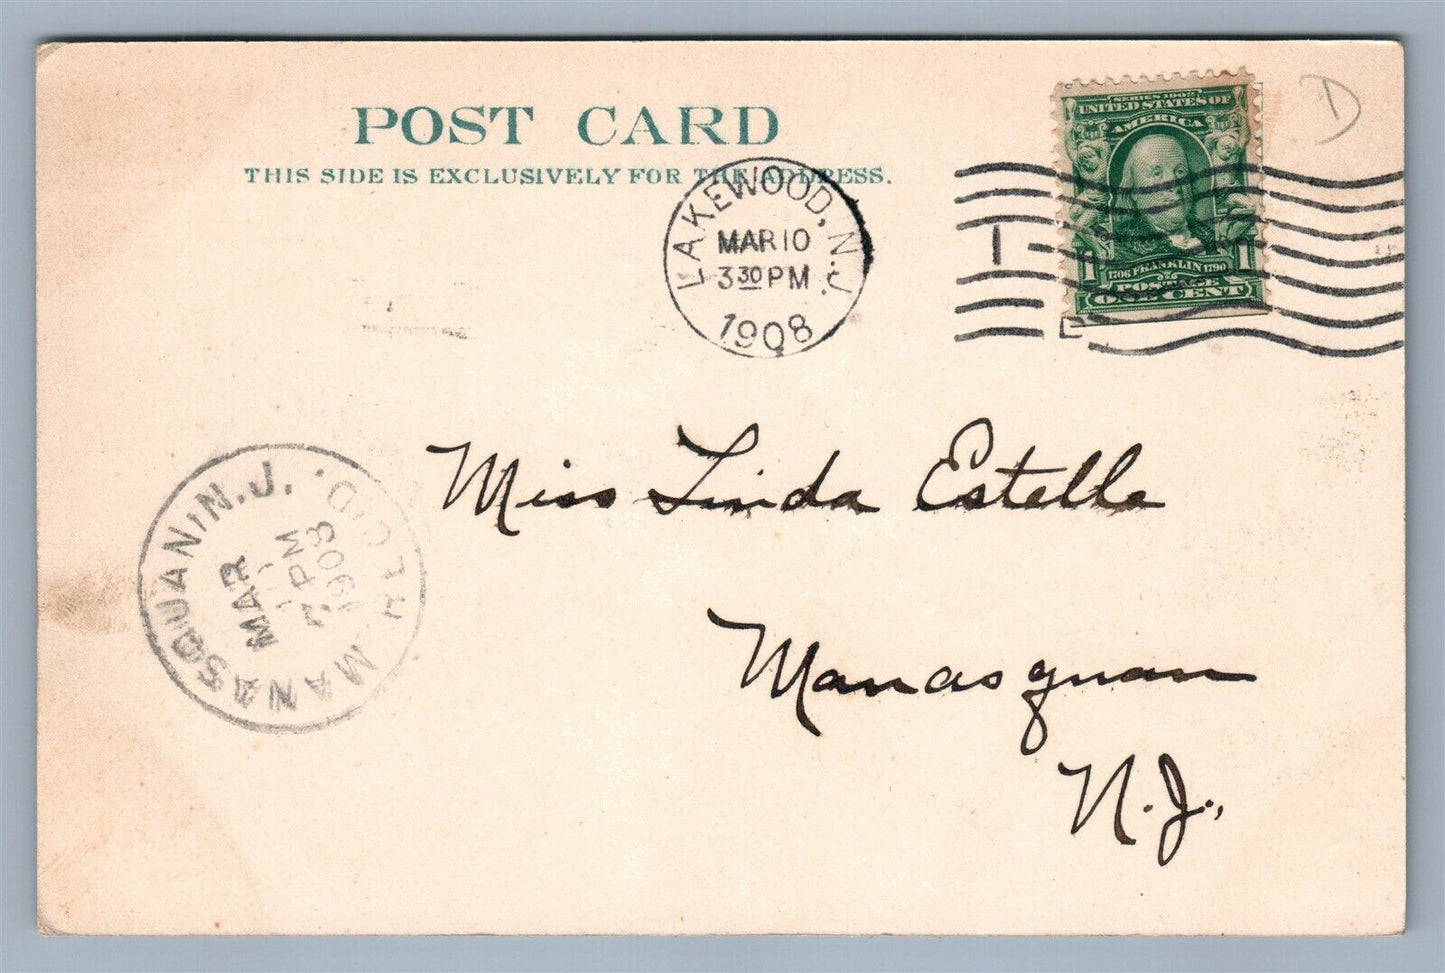 POST CARD
THIS SIDE IS EXCLUSIVELY FOR THE ADDRESS.
D
SERIES 1902
UNITED STATES OF
AMERICA
1 1
1706 FRANKLIN 1790
POSTAGE
ONE CENT
LAKEWOOD, N.J.
MAR 10
3 30 PM
1908
1
Miss Linda Estelle
Manasquan
N.J.,
MANASQUAN, N.J.
REC'D.
MAR
10
7 PM
1908